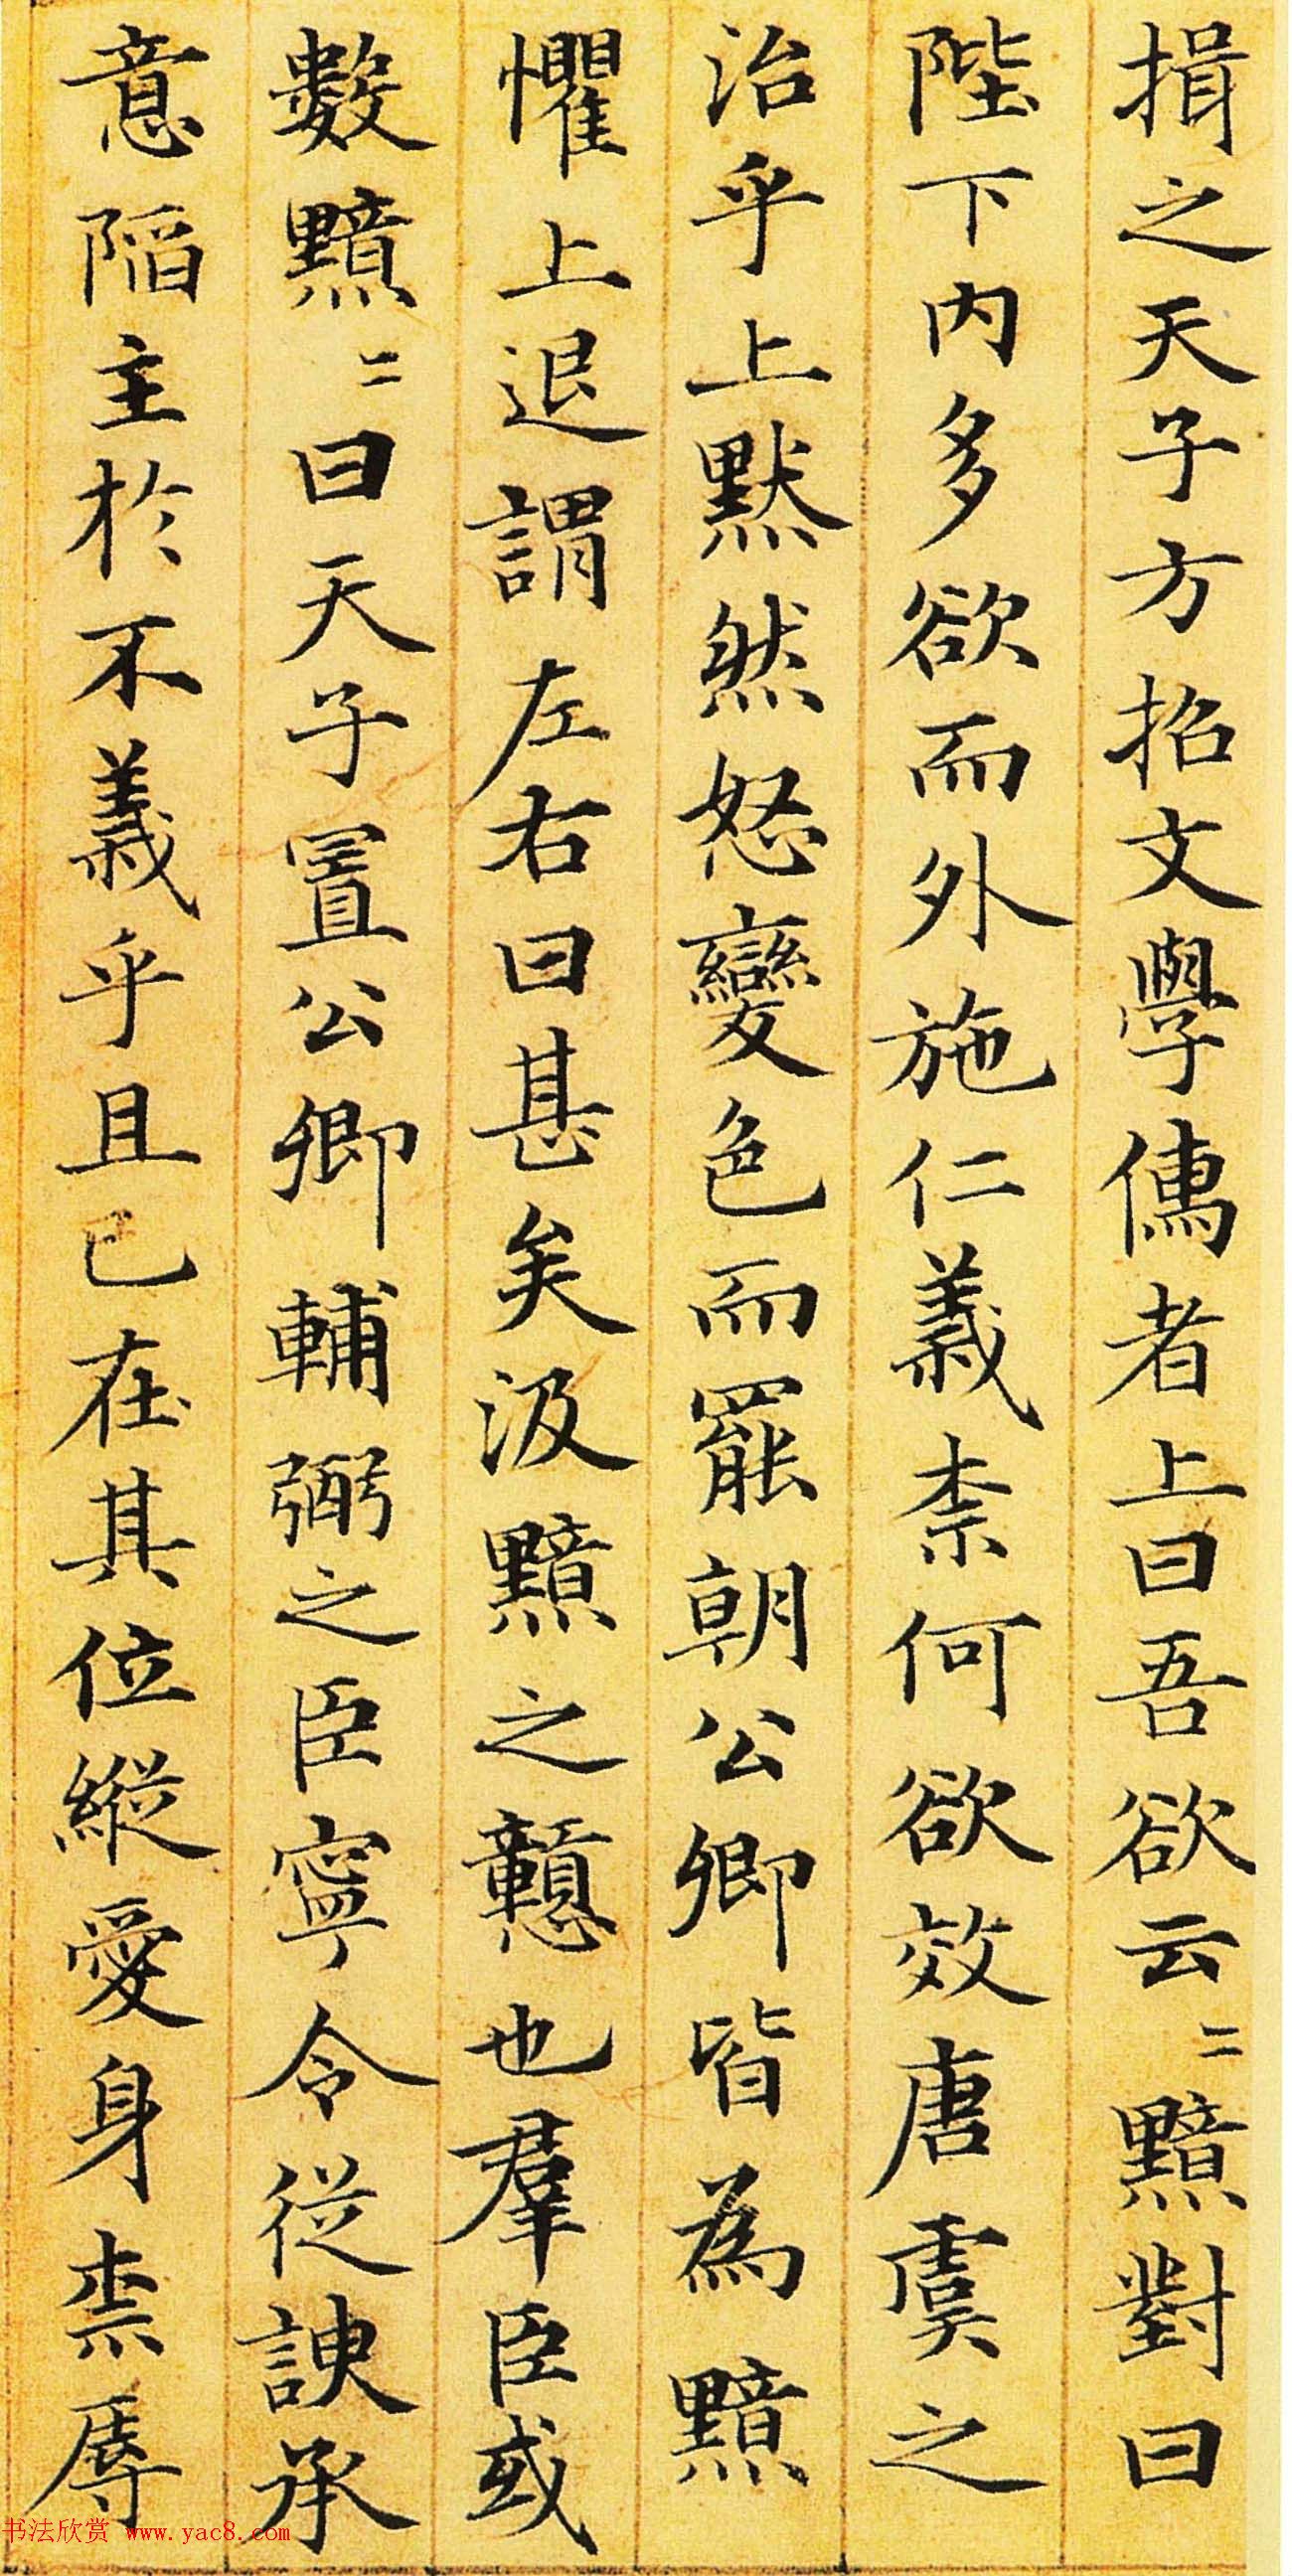 揖之天子方招文學儒者上曰吾欲云〻黯對曰
陛下内多欲而外施仁義柰何欲效唐虞之
治乎上默然怒變色而罷朝公卿皆為黯
懼上退謂左右曰甚矣汲黯之戇也羣臣或
數黯〻曰天子置公卿輔弼之臣寧令従諛承
意陷主於不義乎且已在其位縱愛身柰辱
书法欣赏 www.yac8.com